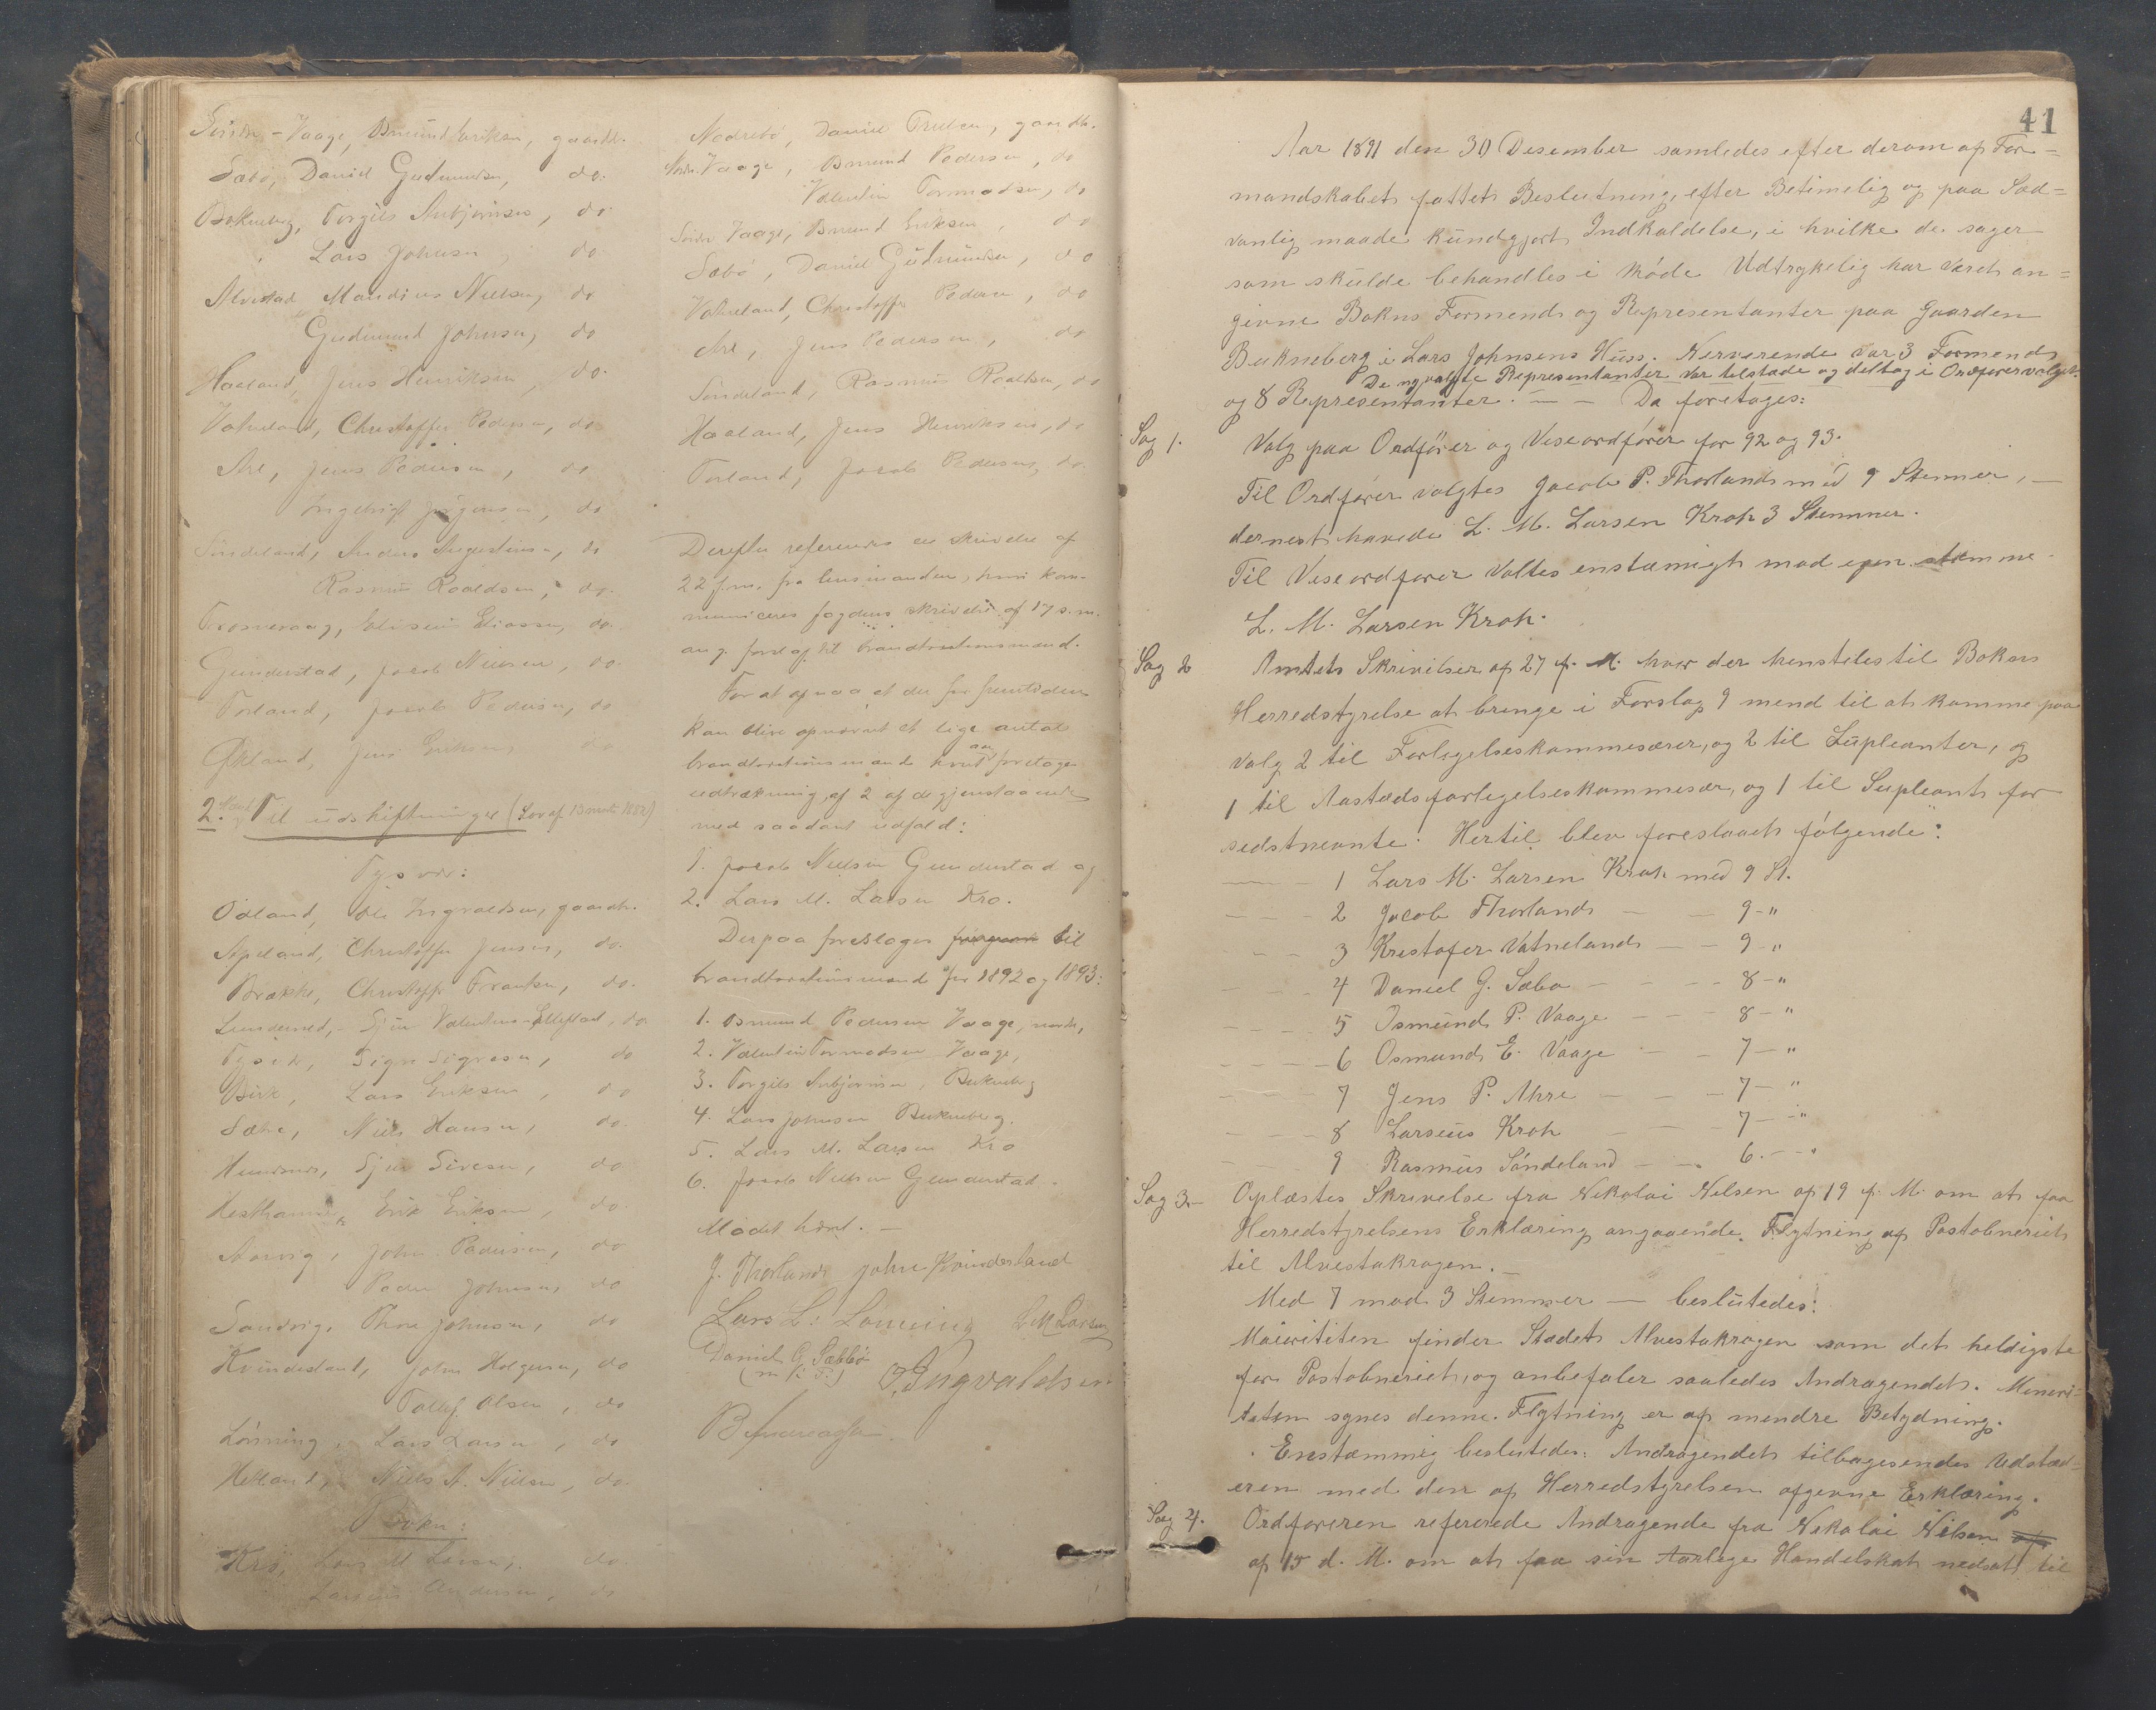 Søndre-Vaage, Osmund Eriksen, gaardbr.
Sæbø, Daniel Gudmundsen, do.
Bokneberg, Torgils Asbjørnsen, do
Lars Johnsen, do
Alvestad, Maudius Nielsen, do
Gudmund Johnsen, do
Haaland, Jens Henriksen, do.
Vatneland, Christoffer Pedersen, do
Are, Jens Pedersen, do
Ingebrigt Jørgensen, do
Søndeland, Anders Augustinsen, do
Rasmus Roaldsen, do.
Trosnevaag, Eliseus Eliassen, do.
Gunderstad, Jacob Nielsen, do.
Torland, Jacob Pedersen, do
Økland, Jens Eriksen, do
2. Til udskiftninger (Lov af 13 mart 1882)
Tysvær:
Odland, Ole Ingvaldsen, gaardbr.
Apeland, Christoffer Jensen, do.
Brække, Christoffer Frantsen, do.
Tysvær, do
Birk, Lars Eriksen, do
Sæbø, Niels Hansen, do.
Sjur Sivesen, do
Hesthammer, Erik Eriksen, do.
Aarvig, John Pedersen, do
Peder Johnsen, do
Sandvig, Thore Johnsen, do
Kvindesland, John Holgersen, do
Tollef Olsen, do
Lønning, Lars Larsen, do
Hetland, Niels A. Nielsen, do.
Bokn:
Kro, Lars M. Larsen, do.
Larseus Andersen, do
Nodrebø, Daniel Troelsen, gaardb.
Nordr. Vaage, Osmund Pedersen, do
Valentin Tormodsen, do
Søndr Vaage, Osmund Eriksen, do
Sæbø, Daniel Gudmundsen, do
Vatneland, Christoffer Pedersen, do
Are, Jens Pedersen, do
Søndeland, Rasmus Roaldsen, do
Haaland, Jens Henriksen, do
Torland, Jacob Pedersen, do.
Derefter refereredes en skrivelse af
22 f.m. fra lensmanden, hvori kom-
municeres fogdens skrivelse af 17 s.m.
ang. forslag til brandtaxtionsmænd.
For at opnaa at der for fremtiden
kan blive opnævnt et lige antal
brandtaxtionsmænd hvert aar foretoges
udtrækning af 2 af de gjenstaaende
med saadant udfald:
1. Jacob Nielsen Gunderstad og
2. Lars M. Larsen Kro.
Derpaa foresloges til
brandtaxtionsmænd for 1892 og 1893:
1. Osmund Pedersen Vaage, nordr,
2. Valentin Tormodsen Vaage,
3. Torgils Asbjørnsen, Bukneberg
4. Lars Johnsen Bukneberg.
5. Lars M. Larsen Kro
6. Jacob Nielsen Gunderstad.
Mødet hævet. —
J. Thorland John Kvindesland
Lars L: Lønning L M Larsen
Daniel G Sæbbø
(m. p. P.) O. Ingvaldsen
B Andreassen.
41
Aar 1891 den 30 Desember samledes efter derom af For=
mandskabet fattet Beslutning, efter Betimelig og paa Sæd=
vanlig maade kundgjort Indkaldelse, i hvilke de sager
som skulde behandles i Møde Udtrykelig har været an=
givne Bokns Formend og Representanter paa Gaarden
Bukneberg i Lars Johnsens Huss. Nerverende var 3 Formend
De nyvalgte Representanter var tilstæde og deltog i Ordførervalget.
og 8 Representanter. — — Da foretages:
Sag 1. Valg paa Ordfører og Viseordfører for 92 og 93.
Til Ordfører valgtes Jacob P. Thorland med 9 Stemmer, —
dernest havede L. M. Larsen Kroh 3 Stemmer.
Til Viseordfører Valtes enstæmigt mod egen stemme
L. M. Larsen Kroh.
Sag 2 Amtets Skrivelser af 27 f. M. hvor der hensteles til Bokns
Herredstyrelse at bringe i Forslag 9 mend til at komme paa
Valg 2 til Forligelseskommesærer, og 2 til Supleanter, og
1 til Aastædsforligelseskommesær, og 1 til Supleant for
sidstnevnte. Hertil blev foreslaaet følgende:
— — 1 Lars M. Larsen Kroh med 9 St.
— — — 2 Jacob Thorland — — 9 - "
— — — 3 Kristofer Vatneland — — 9 - "
— — — 4 Daniel G. Sæbø — — — 8 - "
— — — 5 Osmund P. Vaage — — — 8 - "
— — — 6 Osmund E. Vaage — — 7 - "
— — — 7 Jens P. Ahre — — — 7 - "
— — — 8 Larseus Kroh — — — 7 - "
— — 9 Rasmus Søndeland — — 6. - "
Sag 3. — Oplæstes Skrivelse fra Nikolai Nilsen af 19 f. M. om at faa
Herredstyrelsens Erklæring angaaende Flytning af Postobneriet
til Alvestakragen. —
Med 7 mod 3 Stemmer — beslutedes:
Maioritíten finder Stædet Alvestakragen som det heldigste
for Postobneriet, og anbefaler saaledes Andragendet. Menori=
tæten synes denne Flytning er af mendre Betydning.
Enstæmmig beslutedes: Andragendet tilbagesendes Udstæd=
eren med den af Herredstyrelsen afgivne Erklæring.
Sag 4. Ordføreren refererede Andragende fra Nikolai Nilsen
af 15 d. M. om at faa sin Aarlege Handelskat nedsat til